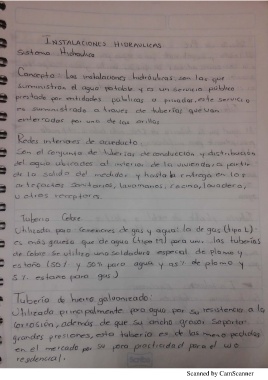 INSTALACIONES HIDRAULICAS
Sistema Hidraulico
Concepto: Las instalaciones hidráulicas son las que
suministran el agua potable y es un servicio público
prestado por entidades públicas o privadas, este servicio
es suministrado a traves de tuberías que van
enterradas por uno de las orillas
Redes interiores de acueducto
Son el conjunto de tuberías de conducción y distribución
del agua ubicadas al interior de la vivienda a partir
de la salida del medidor y hasta la entrega en los
artefactos sanitarios, lavamanos, cocina, lavadero,
u otros receptores.
Tubería Cobre
Utilizada para conexiones de gas y agua: la de gas (tipo L)
es más gruesa que de agua (tipo M) para unir las tuberías
de cobre se utiliza una soldadura especial de plomo y
estaño (50% y 50% para agua y 95% de plomo y
5% estaño para gas)
Tubería de hierro galvanizado:
Utilizada principalmente para agua por su resistencia a la
corrosión, además de que su ancho grosor soportar
grandes presiones, esta tubería es de las menos pedidas
en el mercado por su poca practicidad para el uso
residencial.
Scanned by CamScanner